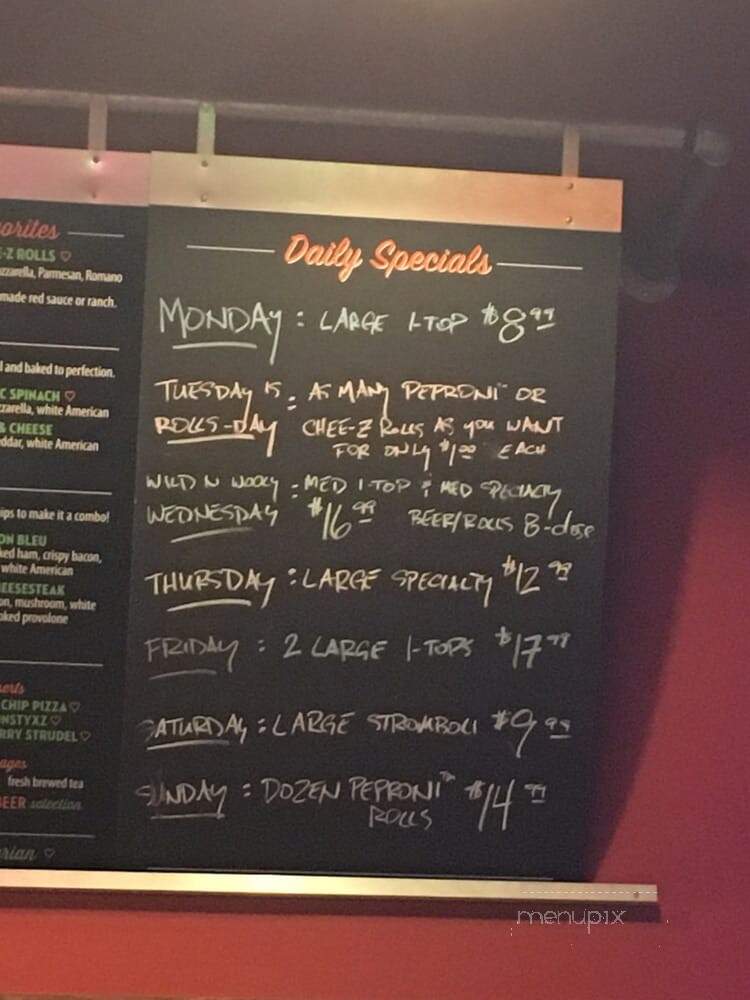 orites
E-Z ROLLS ♡
zzarella, Parmesan, Romano
made red sauce or ranch.
l and baked to perfection.
C SPINACH ♡
zzarella, white American
& CHEESE
eddar, white American
ips to make it a combo!
ON BLEU
ked ham, crispy bacon,
white American
EESESTEAK
on, mushroom, white
oked provolone
erts
CHIP PIZZA ♡
NSTYXZ ♡
RRY STRUDEL ♡
ages
fresh brewed tea
BEER selection
arian ♡
Daily Specials
MONDAY : LARGE 1-TOP $8.99
TUESDAY IS : AS MANY PEPRONI™ OR
ROLLS-DAY CHEE-Z ROLLS AS YOU WANT
FOR ONLY $1.00 EACH
WILD N WOOLY : MED 1-TOP & MED SPECIALTY
WEDNESDAY $16.99 BEER/ROLLS 8-close
THURSDAY : LARGE SPECIALTY $12.99
FRIDAY : 2 LARGE 1-TOPS $17.98
SATURDAY : LARGE STROMBOLI $9.99
SUNDAY : DOZEN PEPRONI™ $14.99
ROLLS
menupix